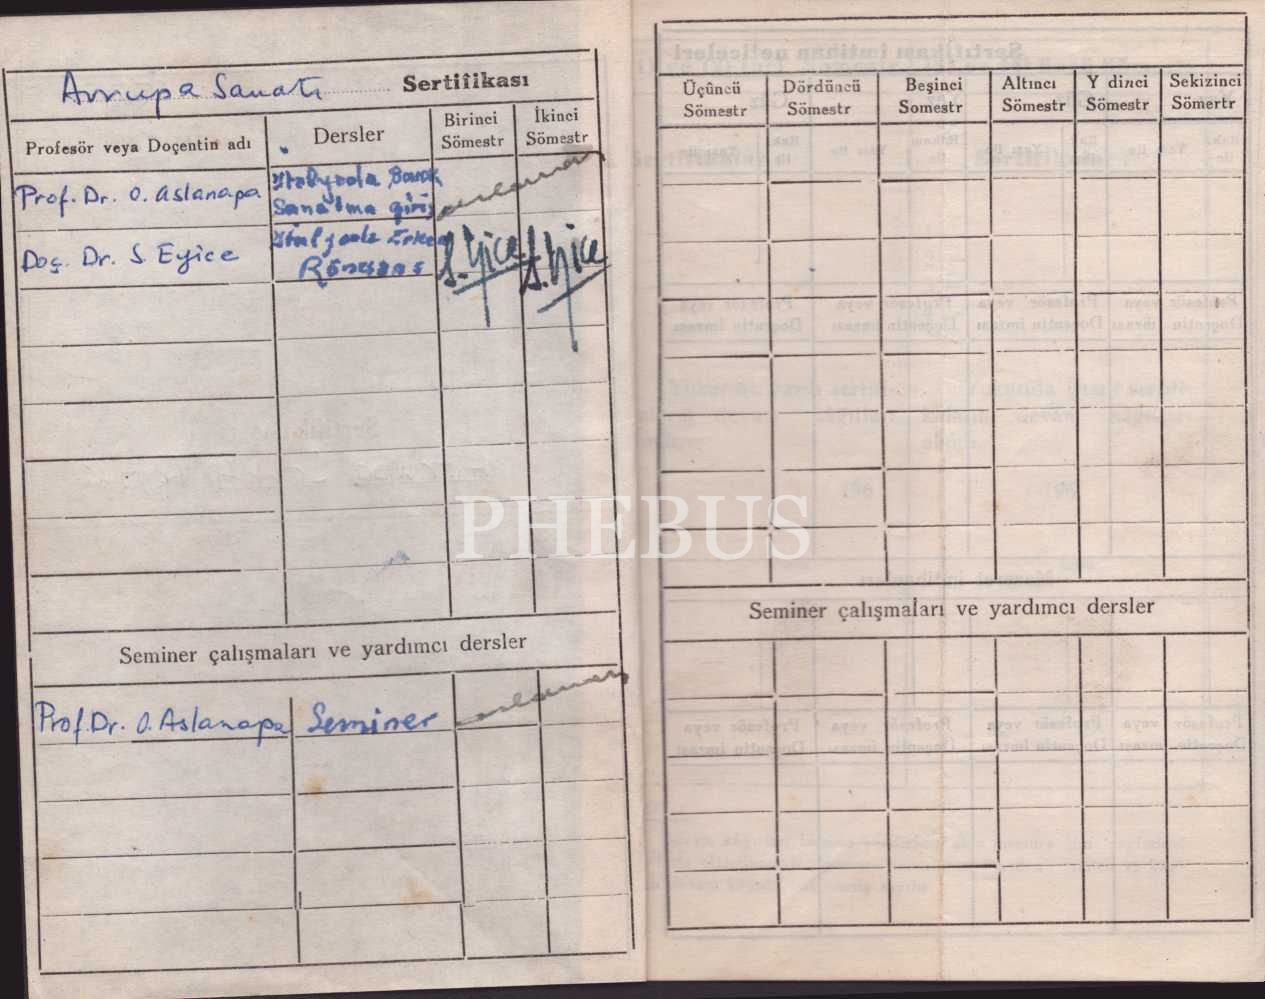 Avrupa Sanatı Sertifikası
Profesör veya Doçentin adı
Dersler
Birinci Sömestr
İkinci Sömestr
Prof. Dr. O. Aslanapa
İtalyada Barok
Sanatına giriş
Aslanapa
Doç. Dr. S. Eyice
İtalyada Erken
Rönesans
S. Eyice
S. Eyice
Seminer çalışmaları ve yardımcı dersler
Prof. Dr. O. Aslanapa
Seminer
Aslanapa
Üçüncü Sömestr
Dördüncü Sömestr
Beşinci Somestr
Altıncı Sömestr
Y dinci Sömestr
Sekizinci Sömertr
Seminer çalışmaları ve yardımcı dersler
PHEBUS